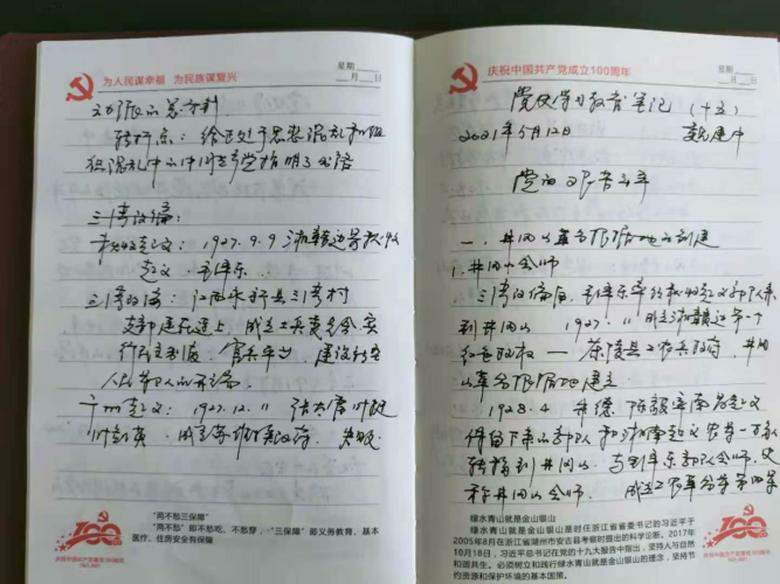 为人民谋幸福 为民族谋复兴
星期
月 日
转折点：给正处于思想混乱和组
织混乱中的中国共产党指明了出路
三湾改编：
秋收起义：1927.9.9 湘赣边界秋收
起义 毛泽东
三湾改编：江西永新县三湾村
支部建在连上，成立士兵委员会，实
行民主制度，官兵平等，建设新型
人民军队的开端
广州起义：1927.12.11 张太雷 叶挺
叶剑英，成立苏维埃政府，失败
“两不愁三保障”
“两不愁”即不愁吃、不愁穿，“三保障”即义务教育、基本
医疗、住房安全有保障
100周年
庆祝中国共产党成立100周年
星期
月 日
党史学习教育笔记（十五）
2021年5月12日
党的艰苦
一、井冈山革命根据地的创建
1.井冈山会师
三湾改编后，毛泽东率领秋收起义部队来
到井冈山 1927.11 成立湘赣边第一个
红色政权——茶陵县工农兵政府，井冈
山革命根据地建立
1928.4 朱德 陈毅率南昌起义
保留下来的部队和湘南起义农军一万余人
转移到井冈山，与毛泽东部队会师，史
称井冈山会师 成立工农革命军第四军
绿水青山就是金山银山
绿水青山就是金山银山是时任浙江省省委书记的习近平于
2005年8月在浙江省湖州市安吉县考察时提出的科学论断。2017年
10月18日，习近平总书记在党的十九大报告中指出，坚持人与自然
和谐共生。必须树立和践行绿水青山就是金山银山的理念，坚持节
约资源和保护环境的基本国策。
100周年